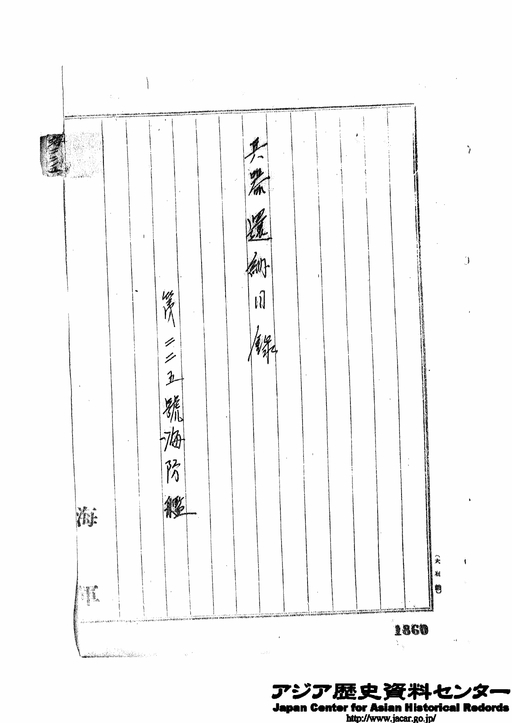 兵器還納目録
第二二五號海防艦
海軍
1860
アジア歴史資料センター
Japan Center for Asian Historical Records
http://www.jacar.go.jp/